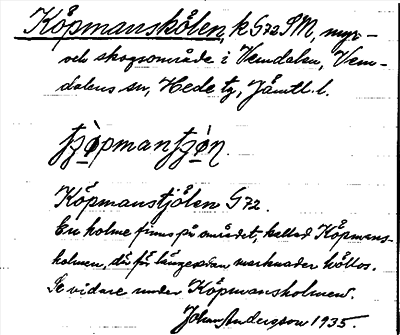 Köpmanskölen, k G72 SM, myr-
och skogsområde i Vemdalen, Vem-
dalens sn, Hede tg, Jämtl. l.
Köpmanstjölen G72.
En holme finns på området, kallad Köpmans-
holmen, där för länge sedan marknader hållos.
Se vidare under Köpmansholmen.
Johan Andersson 1935.